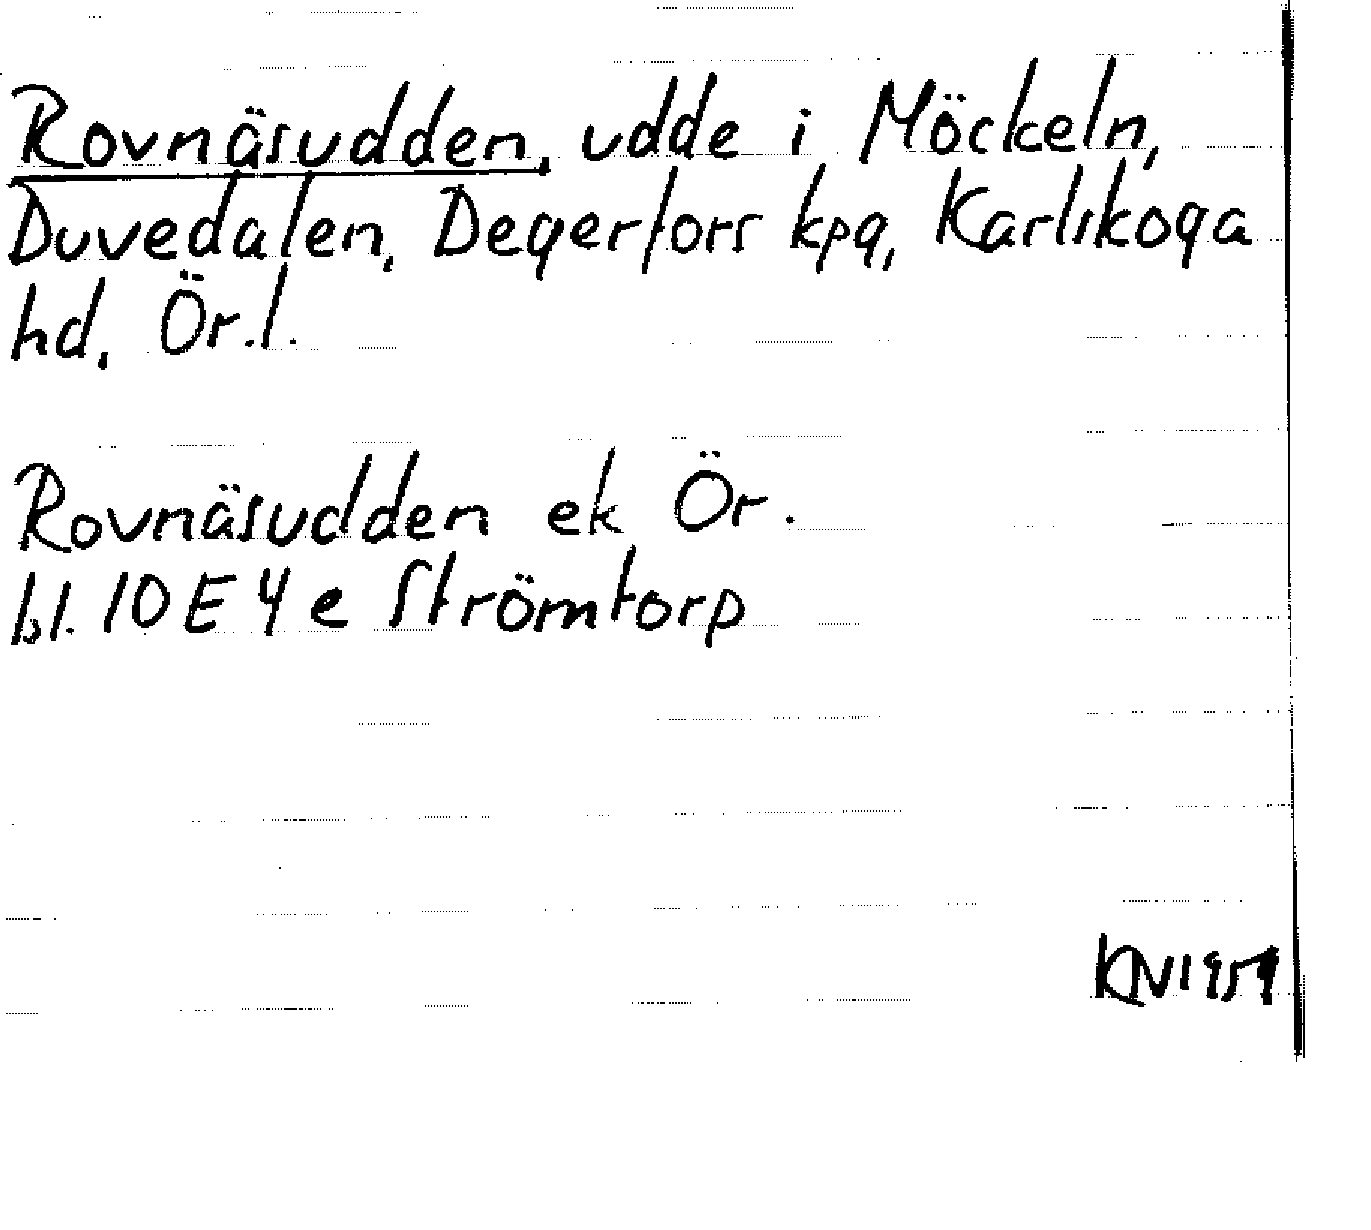 Rovnäsudden, udde i Möckeln,
Duvedalen, Degerfors kpg, Karlskoga
hd, Ör.l.
Rovnäsudden ek Ör.
bl. 10 E 4 e Strömtorp